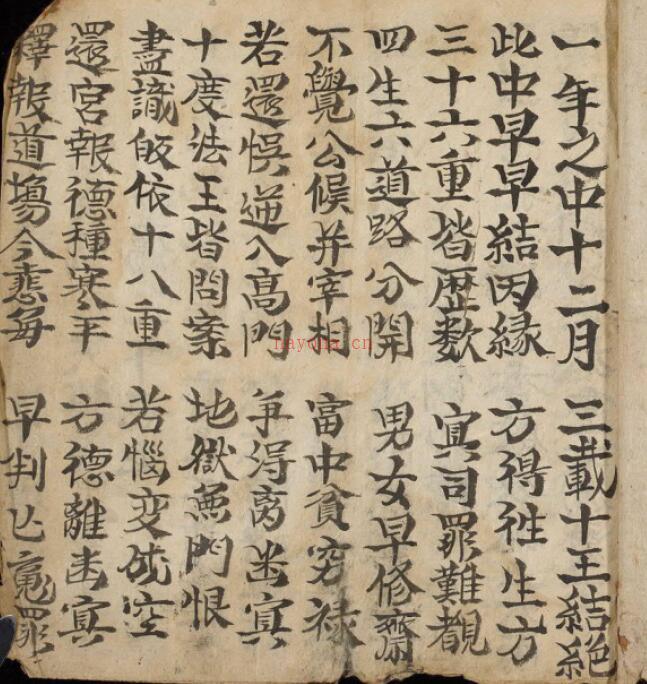 一年之中十二月 三載十王結絕
此中早早結因緣 方得往生方
三十六重皆歷數 冥司罪難覩
四生六道路分開 男女早修齋
不覺公候并宰相 富中貧穷禄
若還悞逆入髙門 争得离幽冥
十度法王皆問案 地獄無門恨
盡識皈依十八重 若惱变成空
還宮報德種寒 方德離幽冥
釋報道場今每 早判亡魂罪
nayona.cn